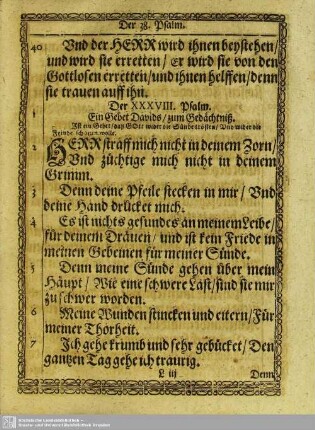 Der 38. Psalm.
40 Vnd der HERR wird ihnen beystehen/
und wird sie erretten/ Er wird sie von den
Gottlosen erretten/und ihnen helffen/denn
sie trauen auff ihn.
Der XXXVIII. Psalm.
1 Ein Gebet Davids/ zum Gedächtniß.
Ist ein Gebet/ daß GOtt woll
2 HERR straff mich nicht in deinem Zorn/
Vnd züchtige mich nicht in deinem
Grimm.
3 Denn deine Pfeile stecken in mir/ Vnd
deine Hand drücket mich.
4 Es ist nichts gesundes an meinem Leibe/
für deinem Dräuen/ und ist kein Friede in
meinen Gebeinen für meiner Sünde.
5 Denn meine Sünde gehen über mein
Häupt/ Wie eine schwere Last/sind sie mir
zu schwer worden.
6 Meine Wunden stincken und eitern/Für
meiner Thorheit.
7 Ich gehe krumb und sehr gebücket/ Den
gantzen Tag gehe ich traurig.
L iij Denn